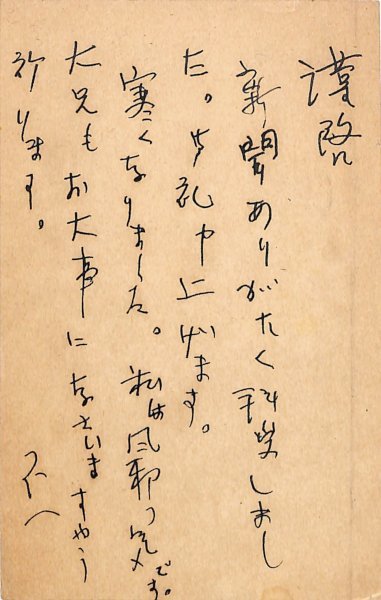 謹啓
新聞ありがたく拝受しまし
た。御礼申上げます。
寒くなりました。私は風邪の気味です。
大兄もお大事になさいますやう
祈ります。
不一